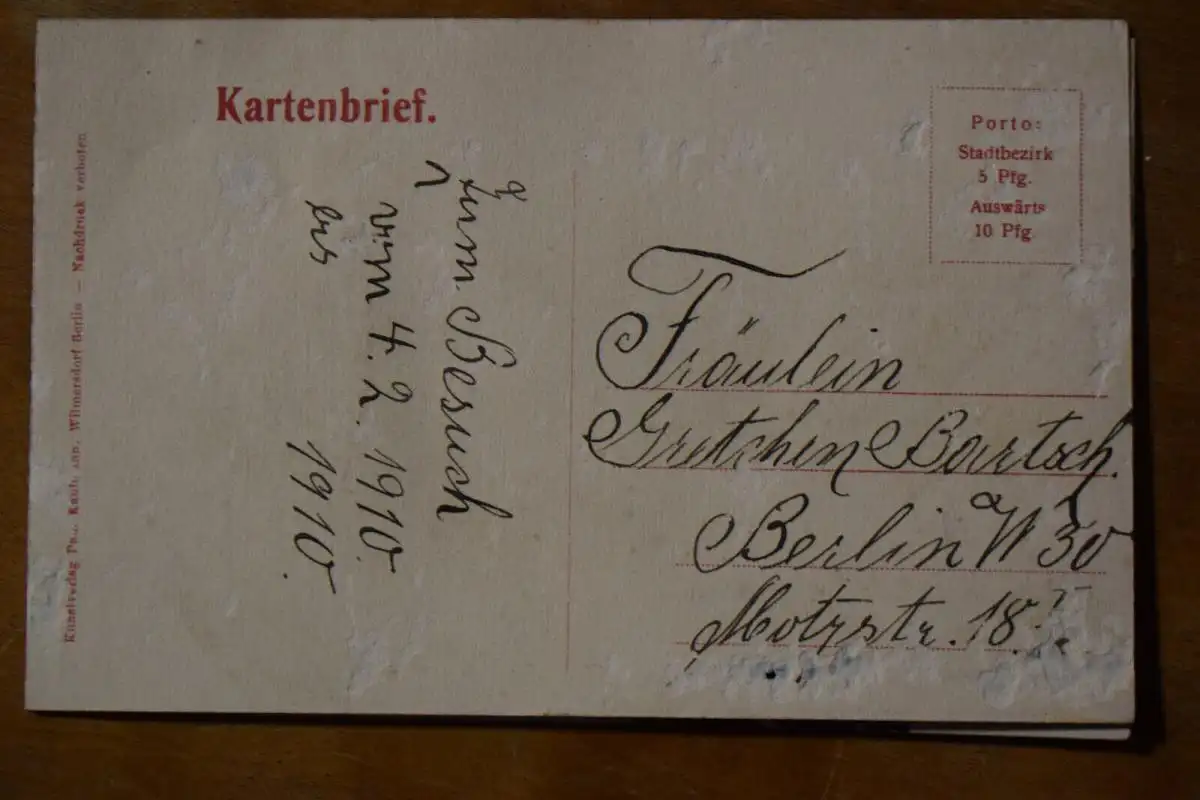 Kartenbrief.
Porto:
Stadtbezirk
5 Pfg.
Auswärts
10 Pfg
Zum Besuch
vom 4. 2. 1910.
bis 1910.
Fräulein
Gretchen Bartsch.
Berlin W 30
Motzstr. 18
Kunstverlag Wilmersdorf Berlin — Nachdruck verboten